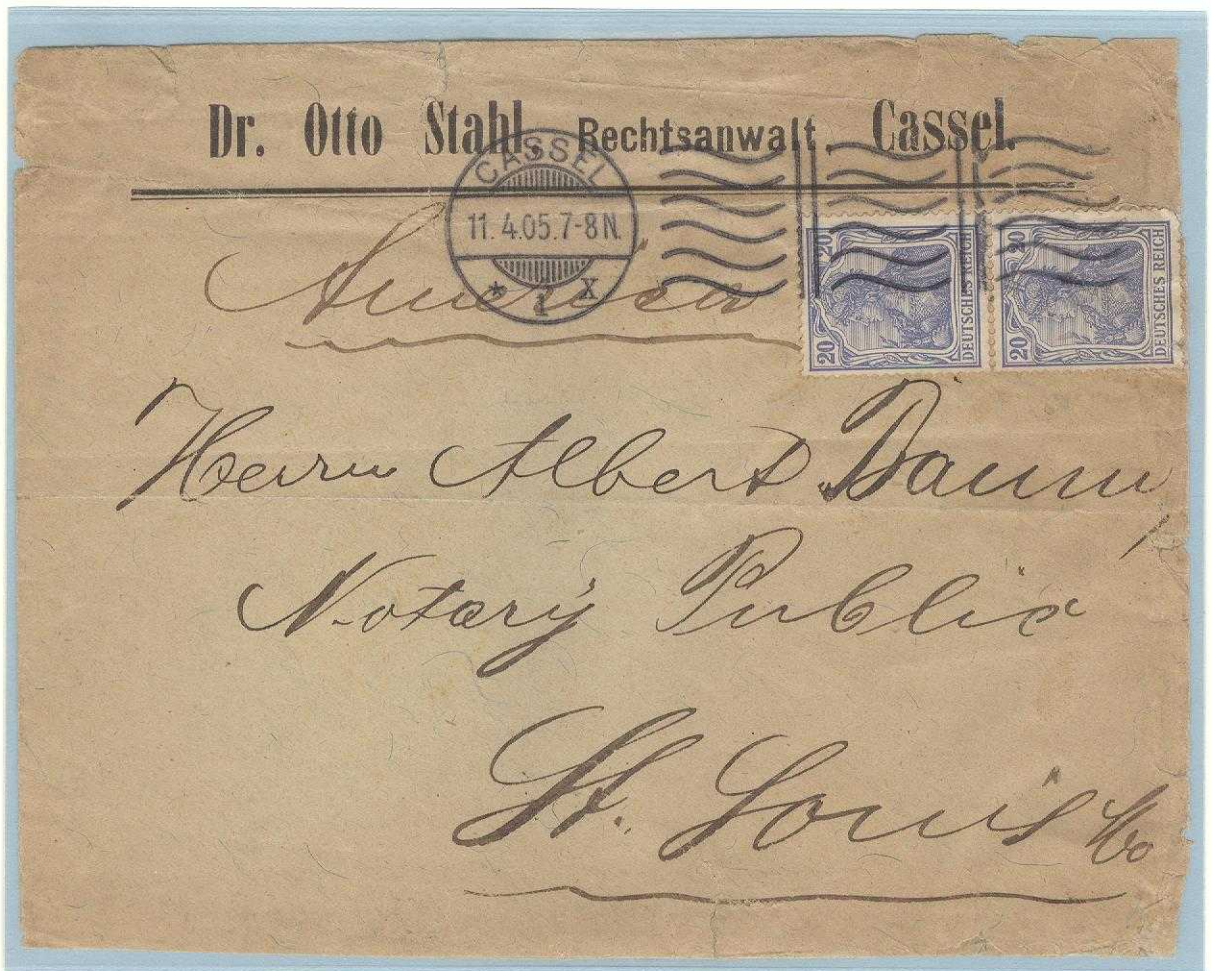 Dr. Otto Stahl, Rechtsanwalt, Cassel.
CASSEL
11.4.05.7-8N.
* 1 X
America
20 20 DEUTSCHES REICH
20 20 DEUTSCHES REICH
Herrn Albert
Notary Public
St. Louis Mo